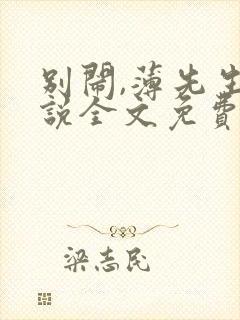 别闹,薄先生
说全文免费
梁志民